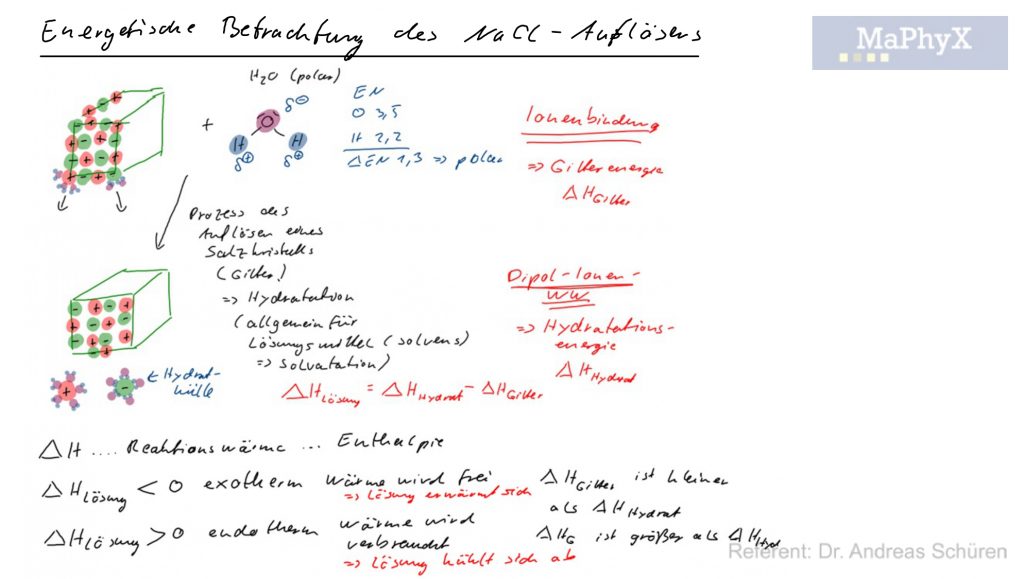 Energetische Betrachtung des NaCl-Auflösens
MaPhyX
H₂O (polar)
+
O
δ⊖
H
H
δ⊕
δ⊕
EN
O 3,5
H 2,2
ΔEN 1,3 => polar
Ionenbindung
=> Gitterenergie
ΔH Gitter
Prozess des
Auflösen eines
Salzkristalls
(Gitter!)
=> Hydratation
(allgemein für
Lösungsmittel (solvens)
=> Solvatation)
Dipol-Ionen-
WW
=> Hydratations-
energie
ΔH Hydrat
← Hydrat-
hülle
ΔH Lösung = ΔH Hydrat - ΔH Gitter
ΔH .... Reaktionswärme ... Enthalpie
ΔH Lösung < 0 exotherm wärme wird frei ΔH Gitter ist kleiner
=> Lösung erwärmt sich als ΔH Hydrat
ΔH Lösung > 0 endotherm wärme wird ΔH G ist größer als ΔH Hyd
verbraucht
=> Lösung kühlt sich ab
Referent: Dr. Andreas Schüren